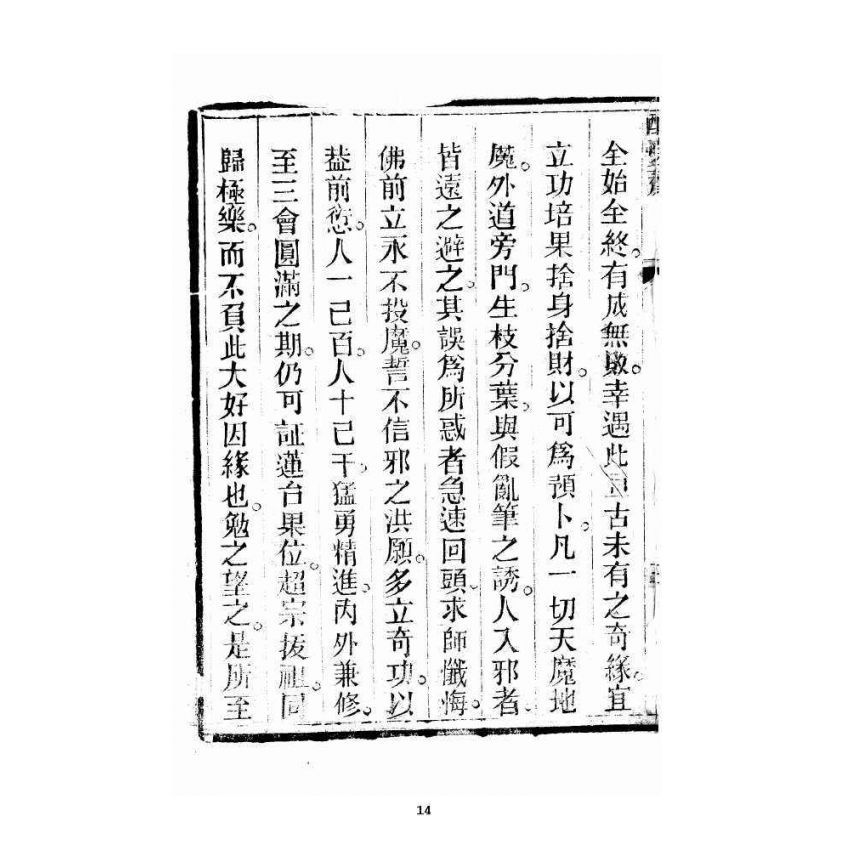 全始全終。有成無敗。幸遇此亘古未有之奇緣。宜
立功培果捨身捨財。以可爲預卜。凡一切天魔地
魔。外道旁門。生枝分葉。與假亂筆之誘。人入邪者
皆遠之避之。其誤爲所惑者急速回頭。求師懺悔。
佛前立永不投魔。誓不信邪之洪願。多立奇功。以
葢前愆。人一己百。人十己千。猛勇精進。內外兼修。
至三會圓滿之期。仍可証蓮台果位。超宗拔祖。同
歸極樂。而不負此大好因緣也。勉之望之。是所至
14